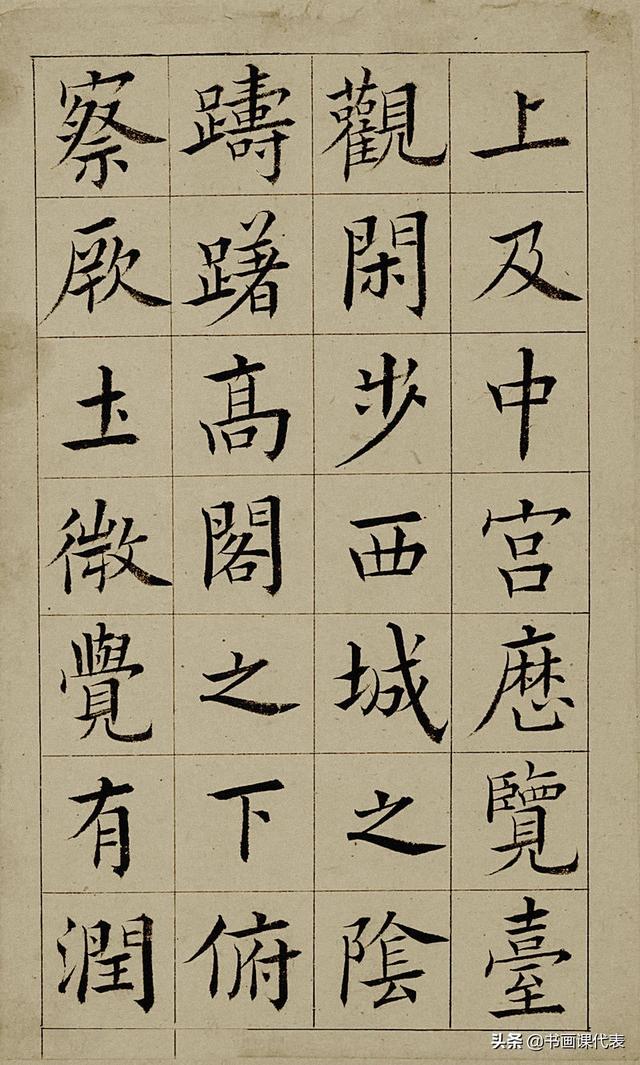 上及中宮歷覽臺
觀閑步西城之陰
躊躇高閣之下俯
察厥土微覺有潤
头条 @书画课代表